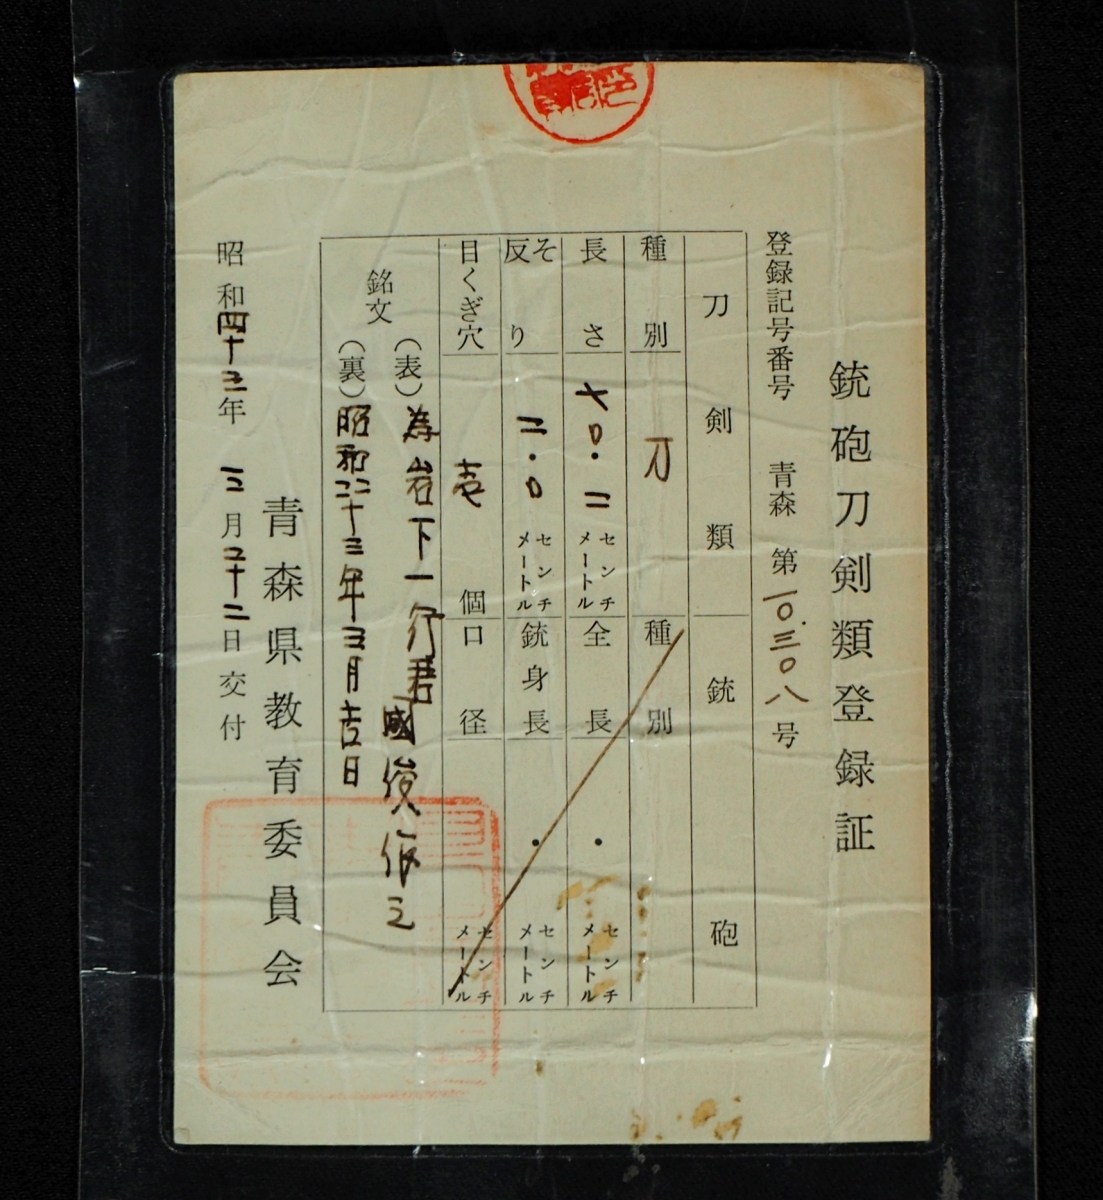 銃砲刀剣類登録証
登録記号番号 青森 第一〇.三〇八号
刀剣類 銃砲
種別 刀 種別
長さ 七〇.二 センチメートル 全長 ・ センチメートル
反り そ 二.〇 センチメートル 銃身長 ・ センチメートル
目くぎ穴 壱 個 口径 センチメートル
銘文 (表) 為岩下一行君 國俊作之
(裏) 昭和二十三年三月吉日
青森県教育委員会
昭和四十三年 三月二十二日交付